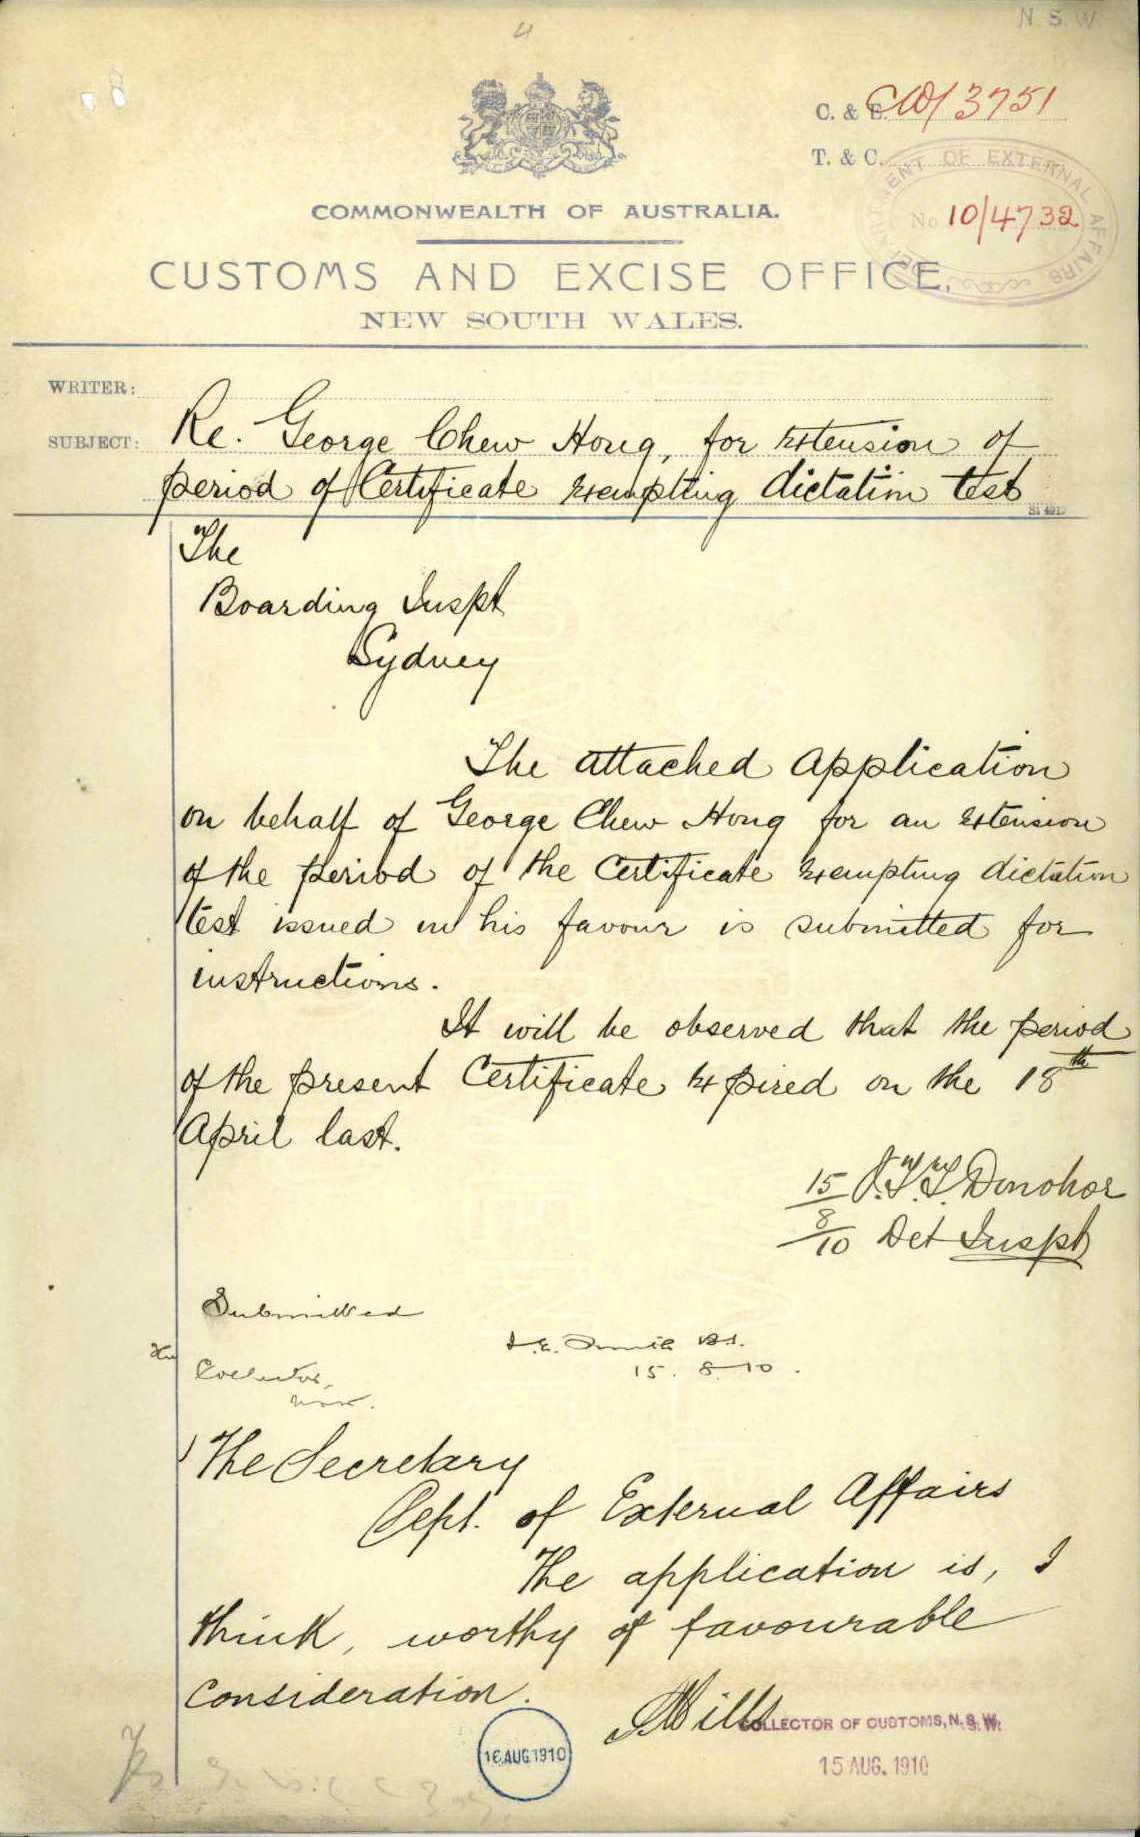 4
N. S. W
C. & E. 10/3751
T. & C.
DEPARTMENT OF EXTERNAL AFFAIRS
No 10/4732
COMMONWEALTH OF AUSTRALIA.
CUSTOMS AND EXCISE OFFICE,
NEW SOUTH WALES.
WRITER:
SUBJECT: Re. George Chew Hong, for extension of
period of Certificate exempting dictation test
The
Boarding Inspt
Sydney
The attached application
on behalf of George Chew Hong for an extension
of the period of the Certificate exempting dictation
test issued in his favour is submitted for
instructions.
It will be observed that the period
of the present Certificate expired on the 18th
April last.
15/8/10 J.T.T. Donohoe
Det Inspt
Submitted
15. 8. 10.
The
Collector,
NSW.
The Secretary
Dept. of External Affairs
The application is, I
think, worthy of favourable
consideration.
Mills
COLLECTOR OF CUSTOMS, N.S.W.
16 AUG 1910
15 AUG. 1910